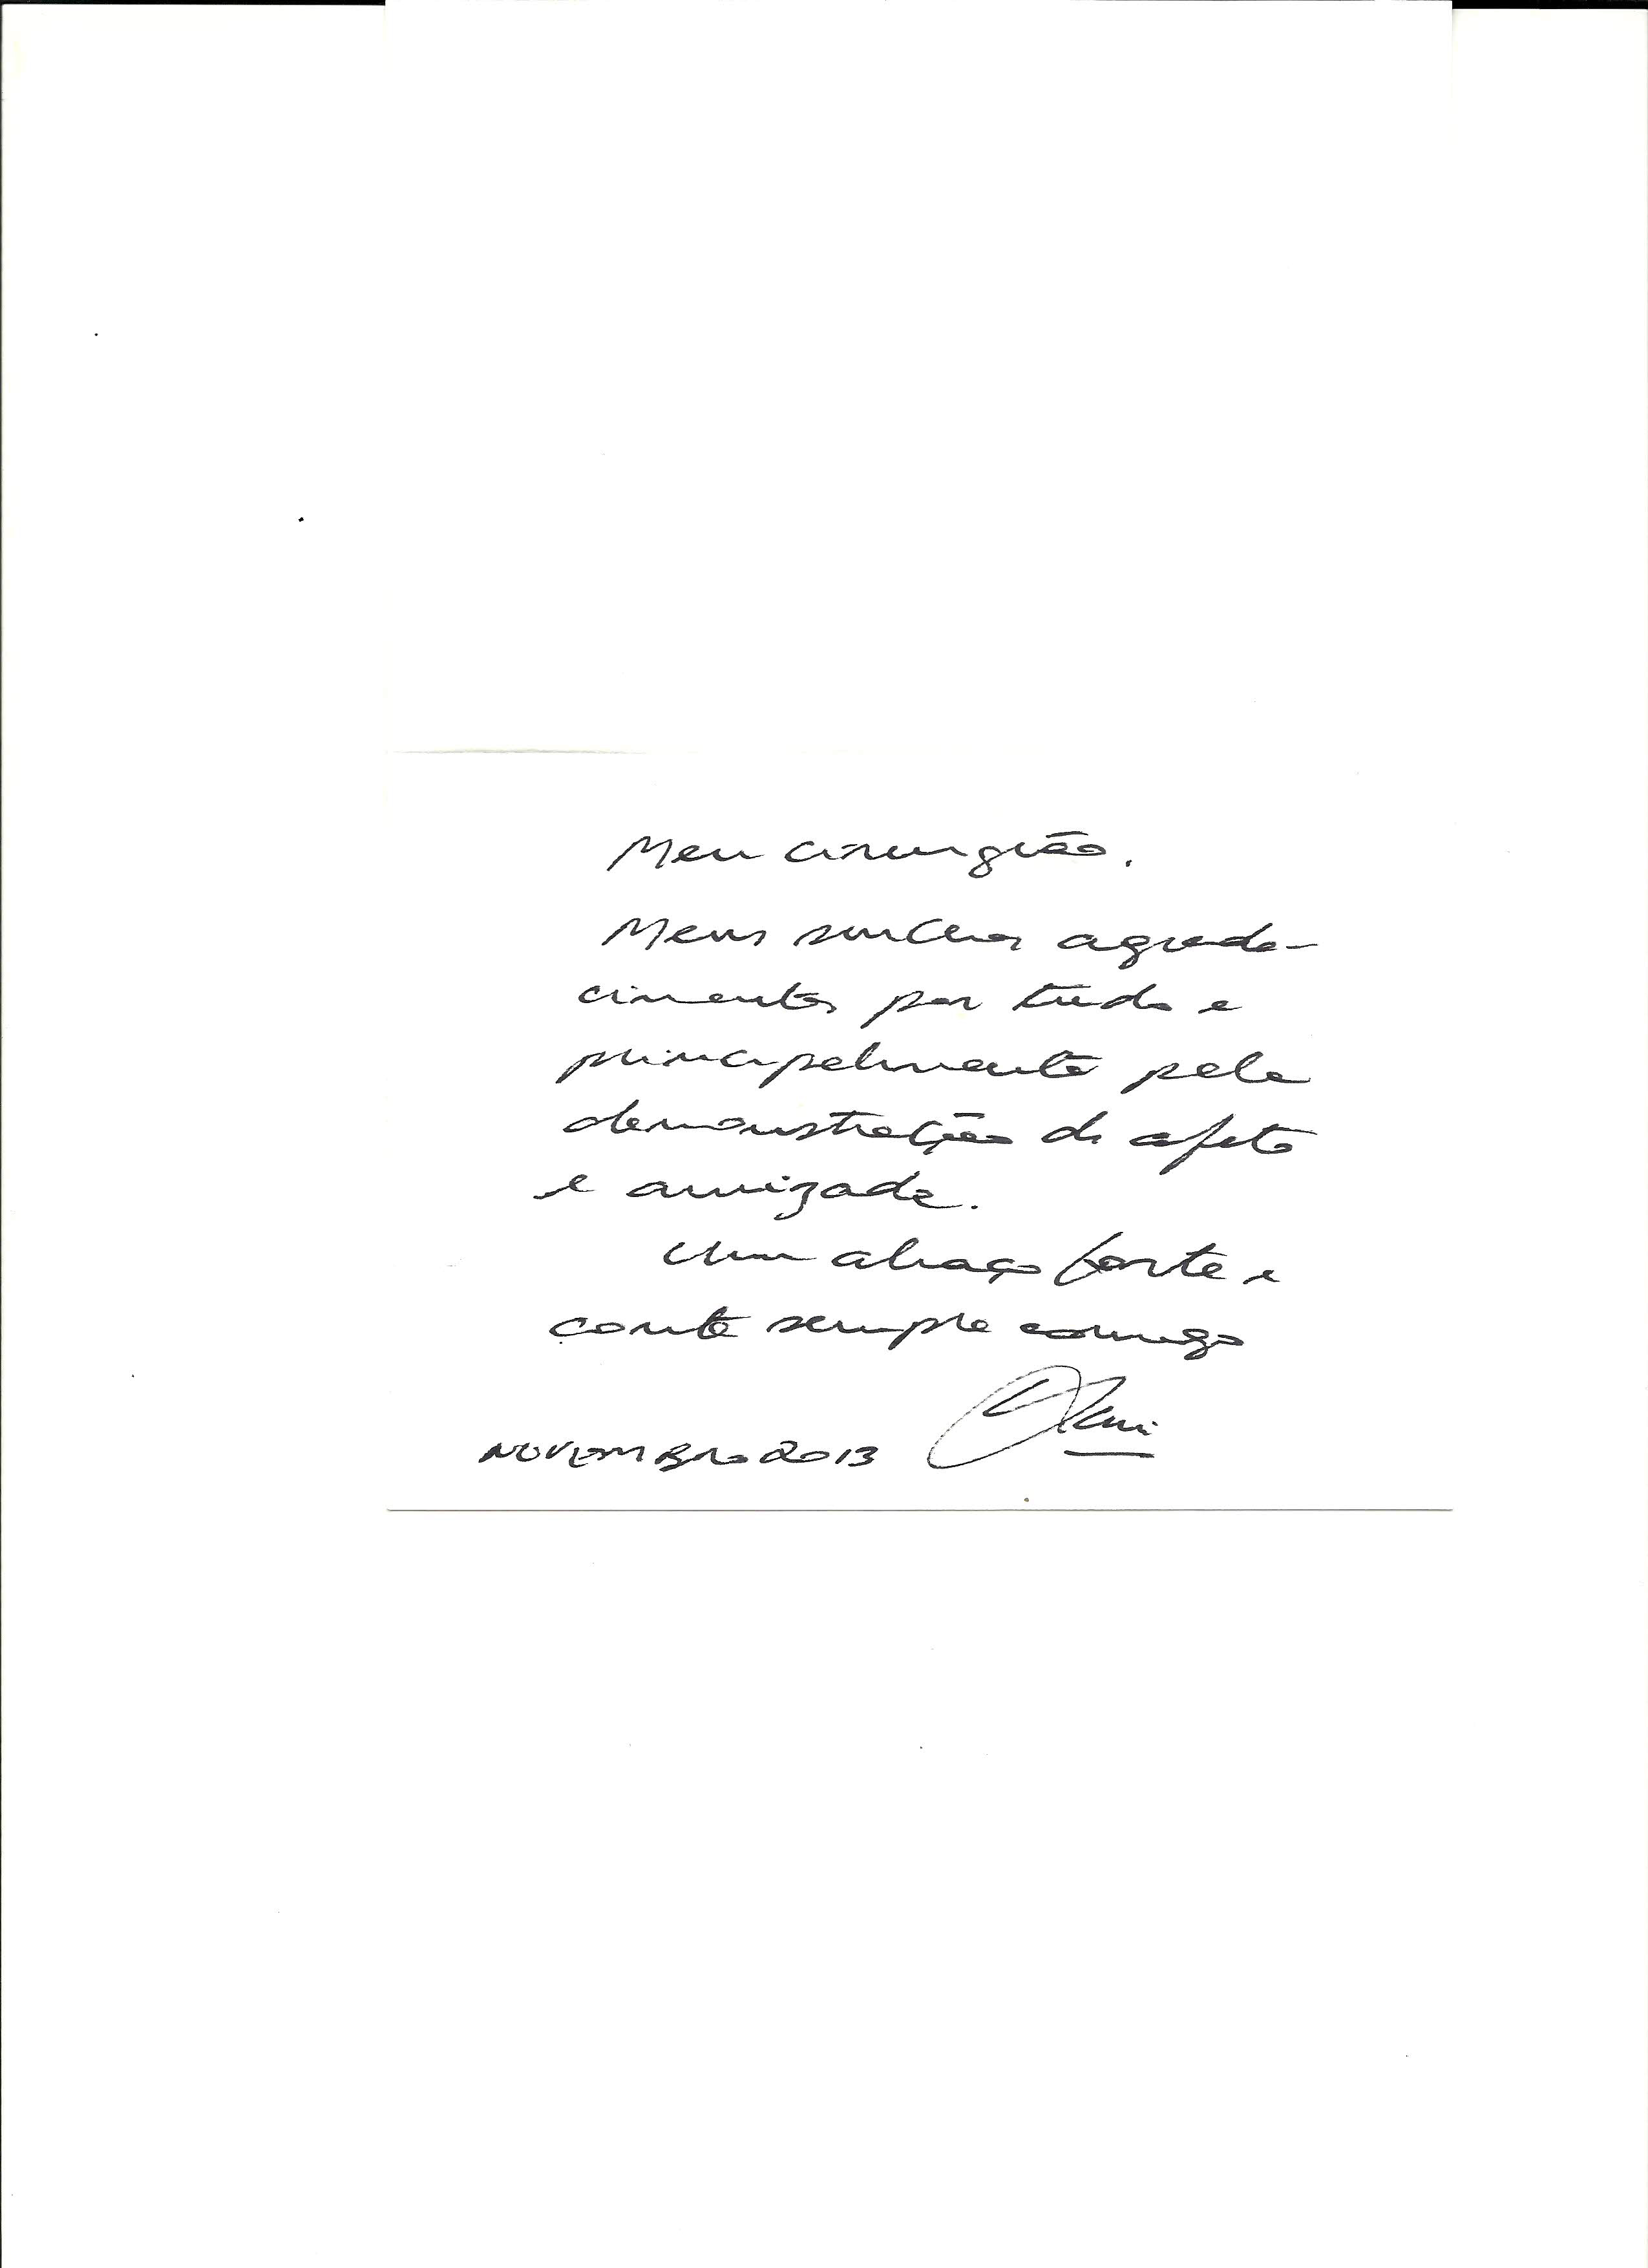 Meu cirurgião.
Meus sinceros agrade-
cimentos por tudo e
principalmente pela
demonstração de afeto
e amizade.
Um abraço forte e
conte sempre comigo
NOVEMBRO 2013